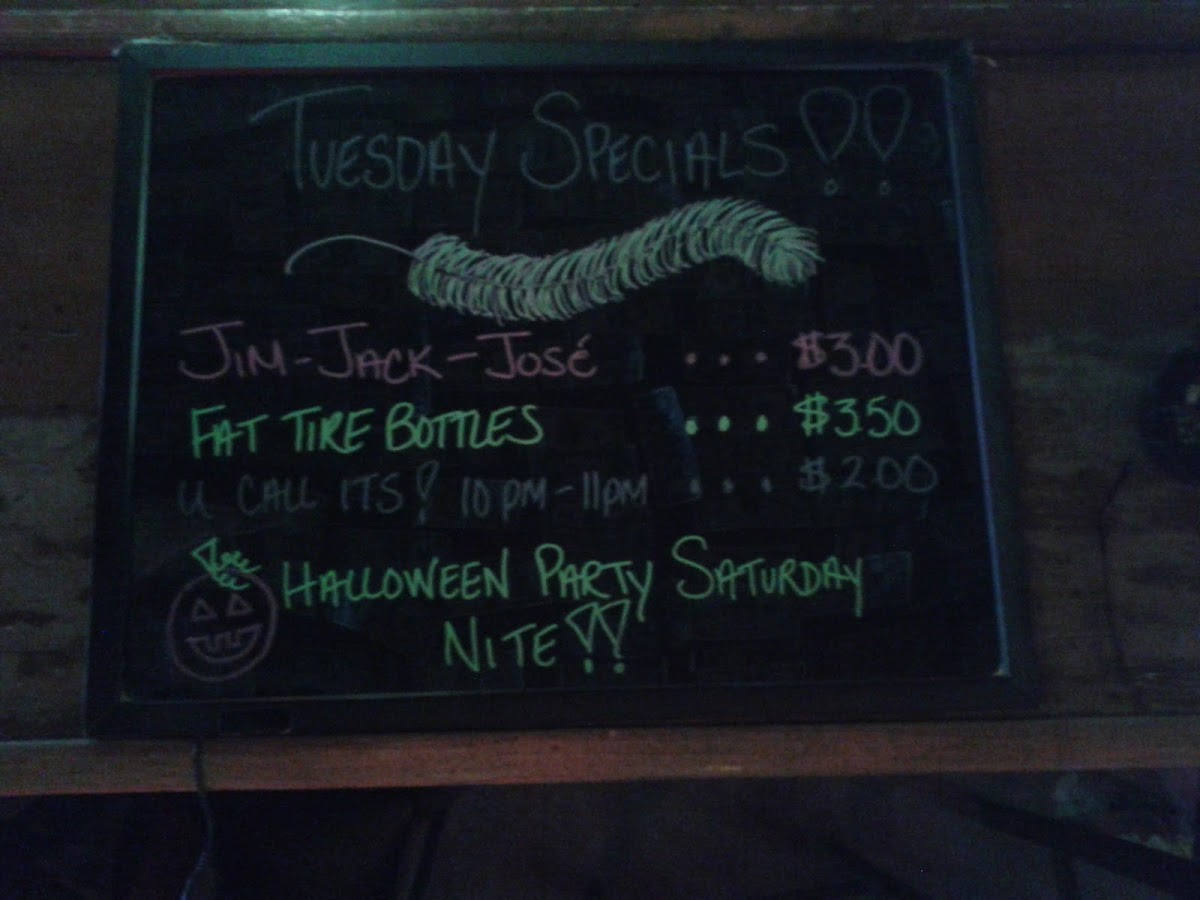 TUESDAY SPECIALS!!
JIM-JACK-JOSÉ ... $3.00
FAT TIRE BOTTLES ... $3.50
U CALL ITS! 10PM-11PM ... $2.00
HALLOWEEN PARTY SATURDAY
NITE!!